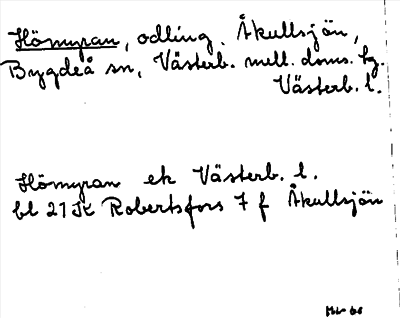 Hömyran, odling. Åkullsjön,
Bygdeå sn, Västerb. mell. doms. tg.
Västerb. l.
Hömyran ek Västerb. l.
bl 21 K Robertsfors 7 f Åkullsjön